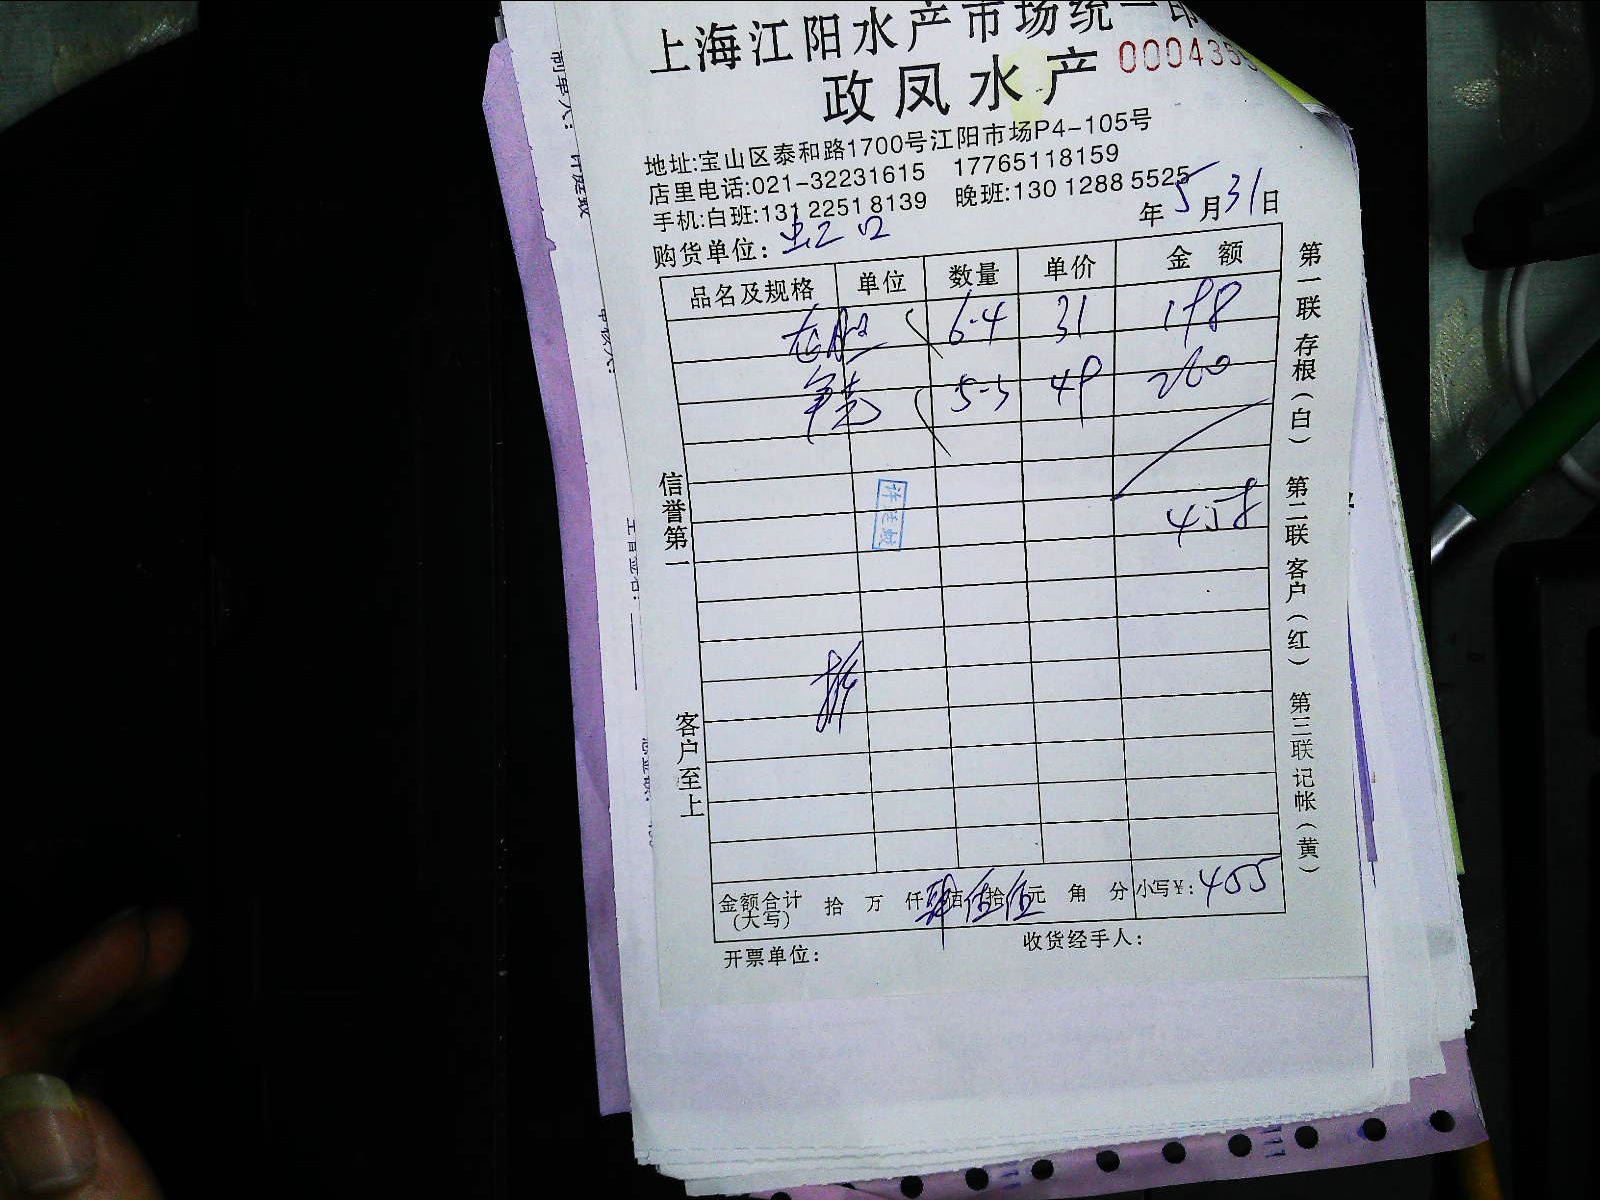 上海江阳水产市场统一印
政凤水产 000435
地址:宝山区泰和路1700号江阳市场P4-105号
店里电话:021-32231615 17765118159
手机:白班:131 2251 8139 晚班:130 1288 5525
年5月31日
购货单位: 虹口
品名及规格 单位 数量 单价 金额
6.4 31 198
5.3 49 260
458
信誉第一
客户至上
金额合计(大写) 拾 万 仟肆佰伍拾伍元 角 分 小写¥: 455
开票单位: 收货经手人:
第一联 存根(白) 第二联 客户(红) 第三联 记帐(黄)
制单人: 许廷敏
许廷敏